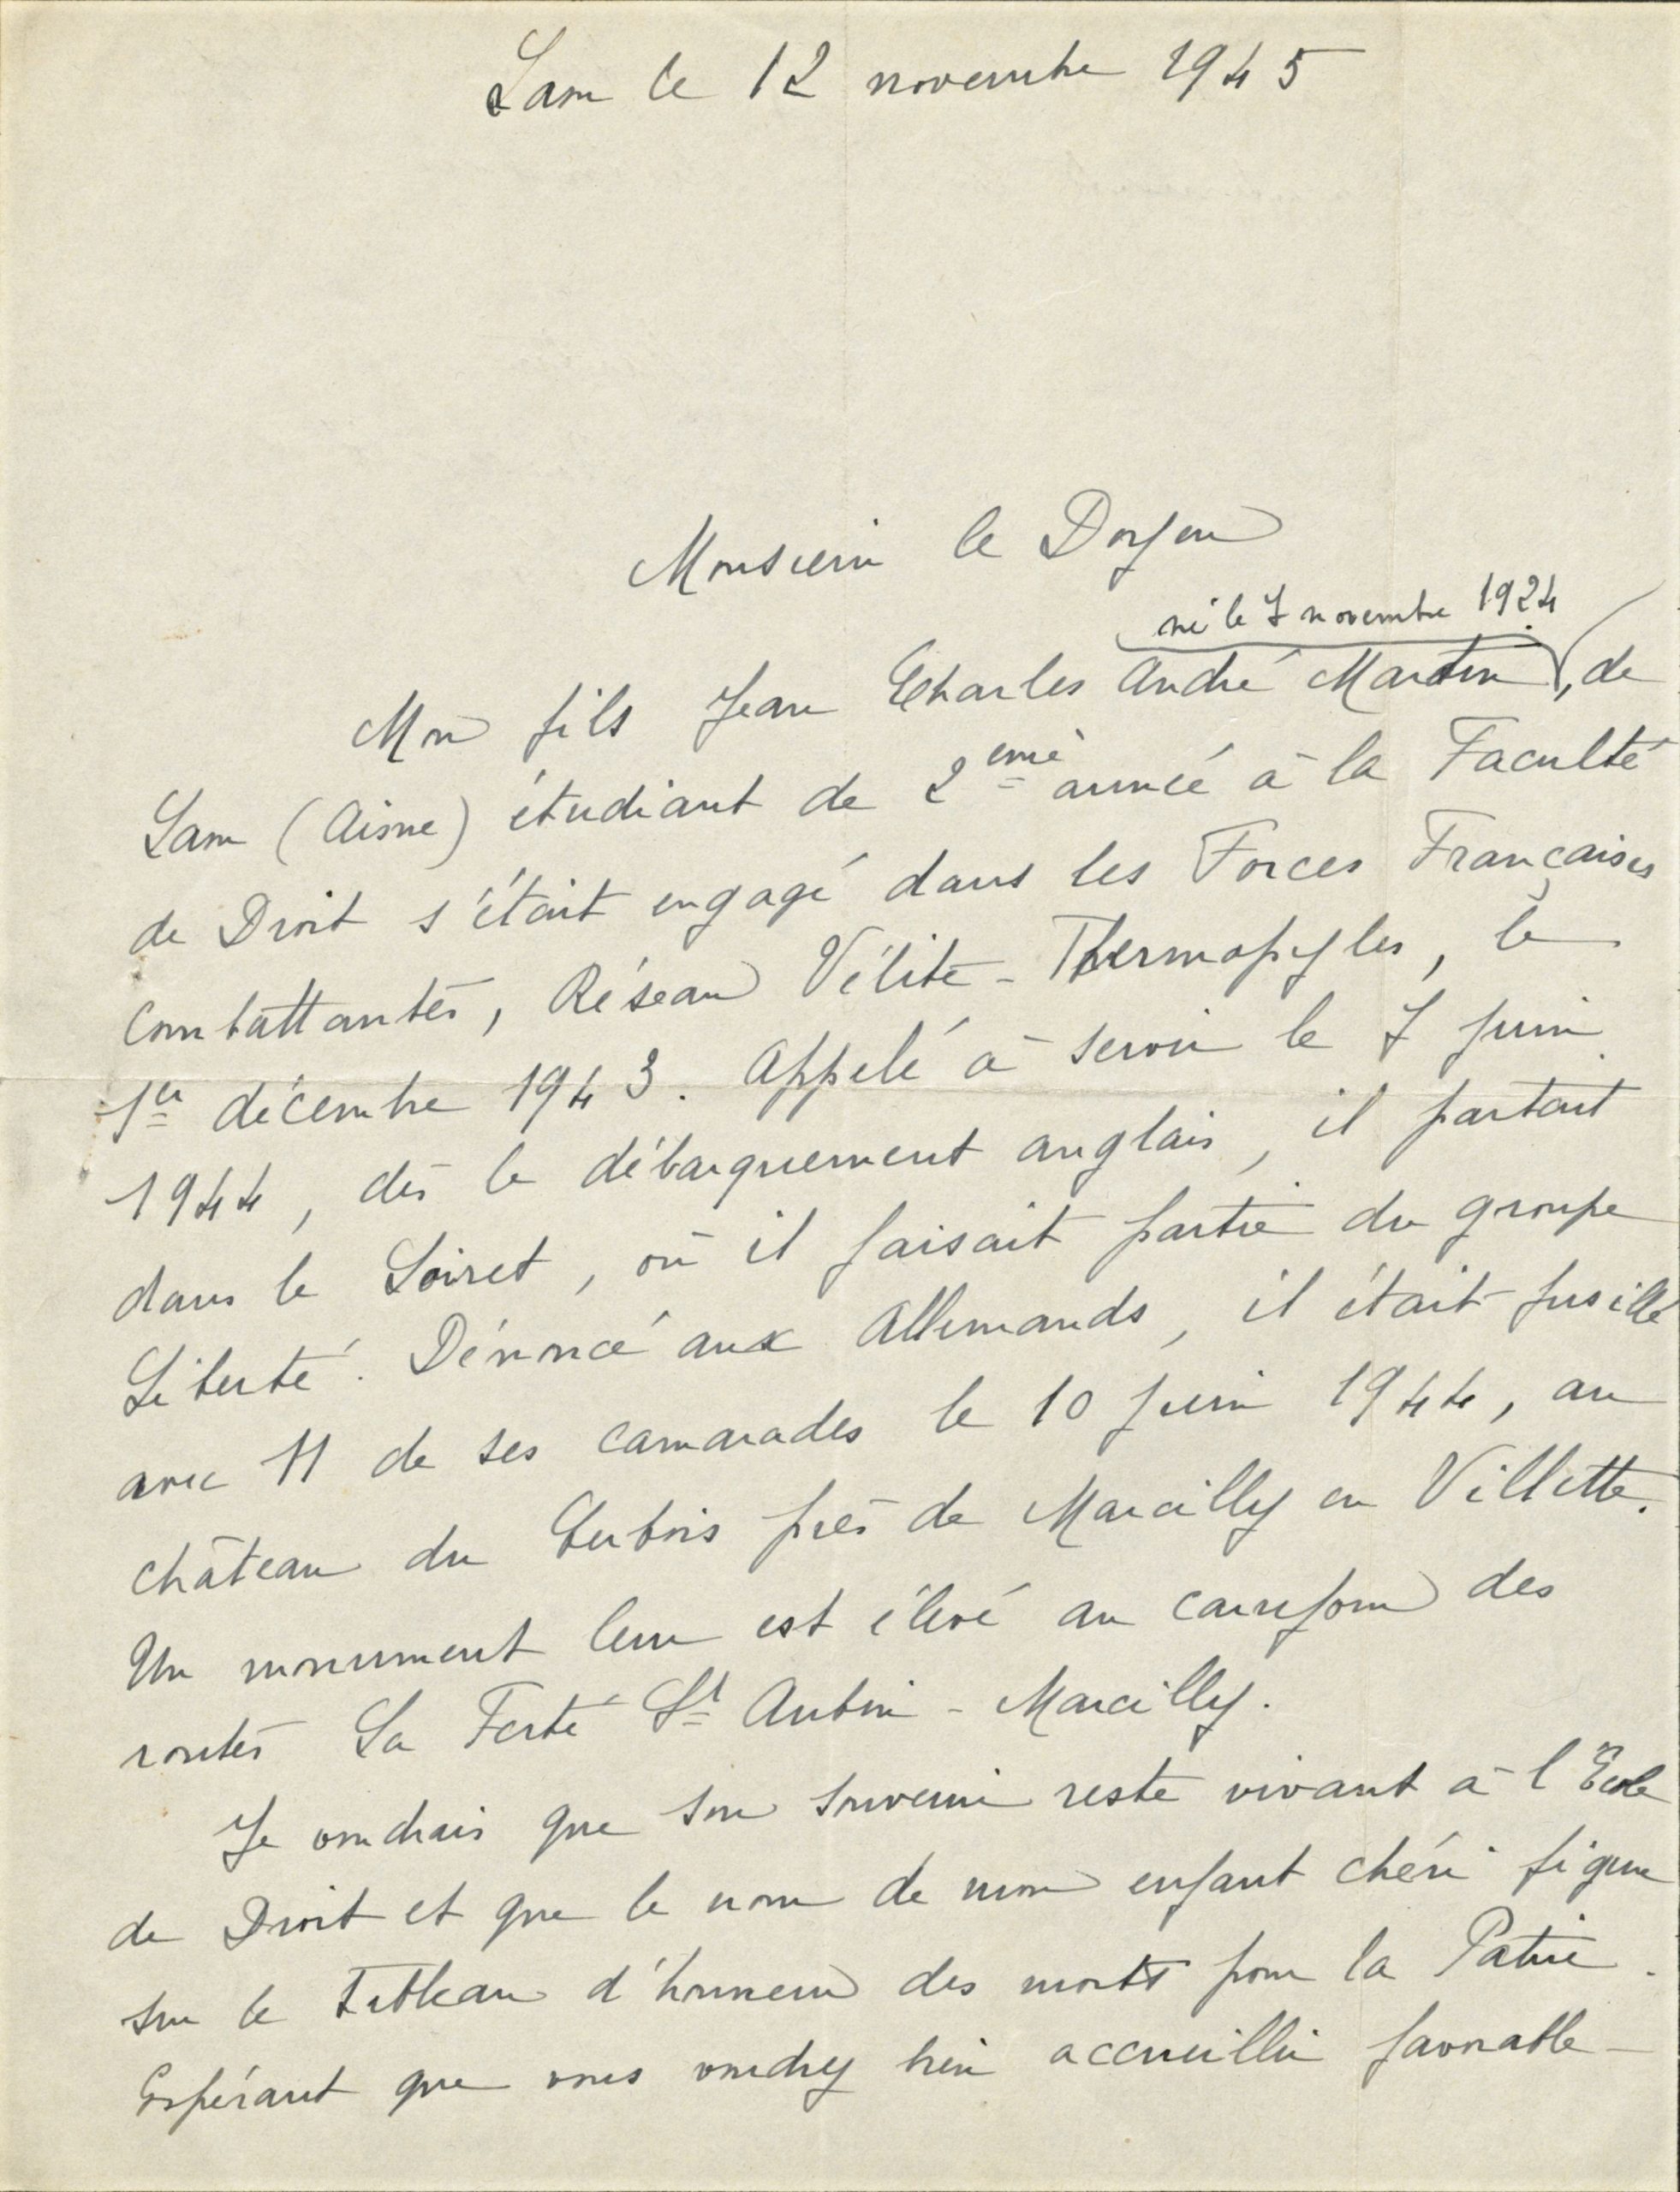 Laon le 12 novembre 1945
Monsieur le Doyen
né le 7 novembre 1924
Mon fils Jean Charles André Martin, de
Laon (Aisne) étudiant de 2ème année à la Faculté
de Droit s'était engagé dans les Forces Françaises
Combattantes, Réseau Vélite-Thermopyles, le
1er décembre 1943. Appelé à servir le 7 juin
1944, dès le débarquement anglais, il partait
dans le Loiret, où il faisait partie du groupe
Liberté. Dénoncé aux Allemands, il était fusillé
avec 11 de ses camarades le 10 juin 1944, au
château du Cerbois près de Marcilly en Villette.
Un monument leur est élevé au carrefour des
routes La Ferté St Aubin - Marcilly.
Je voudrais que son souvenir reste vivant à l'Ecole
de Droit et que le nom de mon enfant chéri figure
sur le tableau d'honneur des morts pour la Patrie.
Espérant que vous voudrez bien accueillir favorable-